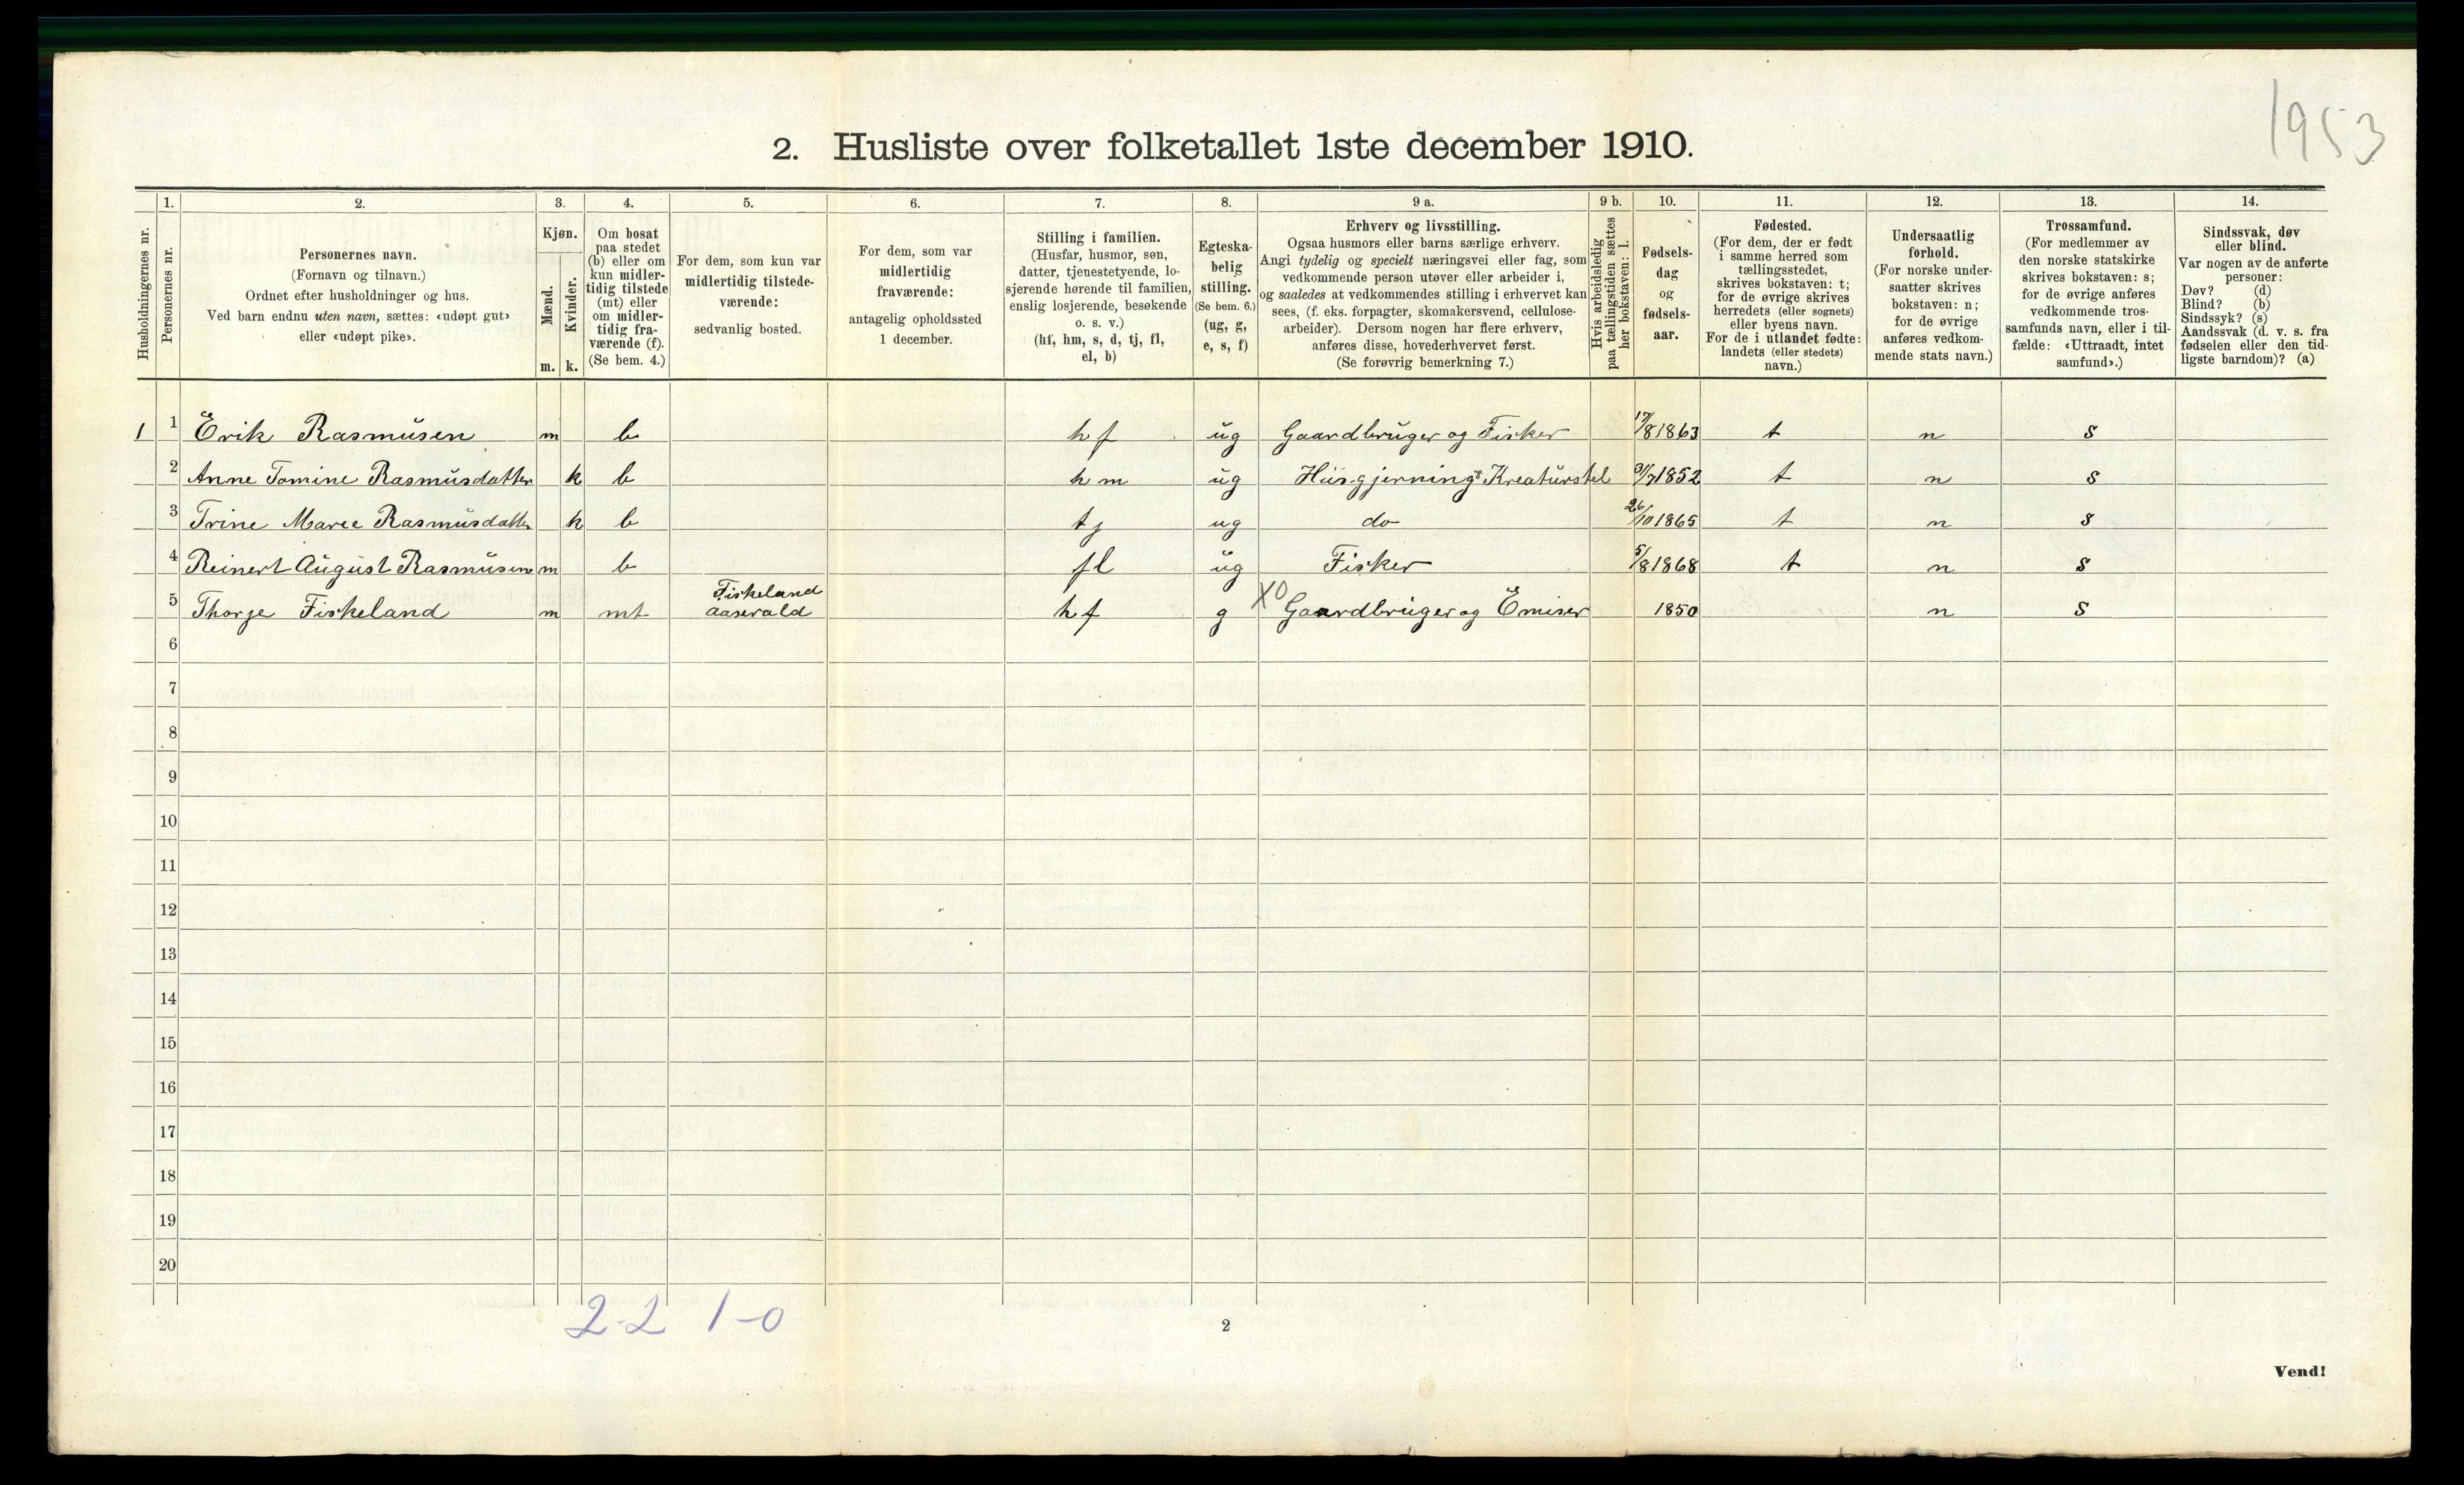 1953
2. Husliste over folketallet 1ste december 1910.
Husholdningernes nr.
1.
Personernes nr.
2.
Personernes navn.
(Fornavn og tilnavn.)
Ordnet efter husholdninger og hus.
Ved barn endnu uten navn, sættes: «udøpt gut»
eller «udøpt pike».
3.
Kjøn.
Mænd.
Kvinder.
m. k.
4.
Om bosat
paa stedet
(b) eller om
kun midler-
tidig tilstede
(mt) eller
om midler-
tidig fra-
værende (f).
(Se bem. 4.)
5.
For dem, som kun var
midlertidig tilstede-
værende:
sedvanlig bosted.
6.
For dem, som var
midlertidig
fraværende:
antagelig opholdssted
1 december.
7.
Stilling i familien.
(Husfar, husmor, søn,
datter, tjenestetyende, lo-
sjerende hørende til familien,
enslig losjerende, besøkende
o. s. v.)
(hf, hm, s, d, tj, fl,
el, b)
8.
Egteska-
belig
stilling.
(Se bem. 6.)
(ug, g,
e, s, f)
9 a.
Erhverv og livsstilling.
Ogsaa husmors eller barns særlige erhverv.
Angi tydelig og specielt næringsvei eller fag, som
vedkommende person utøver eller arbeider i,
og saaledes at vedkommendes stilling i erhvervet kan
sees, (f. eks. forpagter, skomakersvend, cellulose-
arbeider). Dersom nogen har flere erhverv,
anføres disse, hovederhvervet først.
(Se forøvrig bemerkning 7.)
9 b.
Hvis arbeidsledig
paa tællingstiden sættes
her bokstaven: l.
10.
Fødsels-
dag
og
fødsels-
aar.
11.
Fødested.
(For dem, der er født
i samme herred som
tællingsstedet,
skrives bokstaven: t;
for de øvrige skrives
herredets (eller sognets)
eller byens navn.
For de i utlandet fødte:
landets (eller stedets)
navn.)
12.
Undersaatlig
forhold.
(For norske under-
saatter skrives
bokstaven: n;
for de øvrige
anføres vedkom-
mende stats navn.)
13.
Trossamfund.
(For medlemmer av
den norske statskirke
skrives bokstaven: s;
for de øvrige anføres
vedkommende tros-
samfunds navn, eller i til-
fælde: «Uttraadt, intet
samfund».)
14.
Sindssvak, døv
eller blind.
Var nogen av de anførte
personer:
Døv? (d)
Blind? (b)
Sindssyk? (s)
Aandssvak (d. v. s. fra
fødselen eller den tid-
ligste barndom)? (a)
1 1 Erik Rasmusen m b hf ug Gaardbruger og Fisker 17/8 1863 t n s
2 Anne Tomine Rasmusdatter k b hm ug Husgjerning & Kreaturstel 31/7 1852 t n s
3 Trine Marie Rasmusdatter k b tj ug do 26/10 1865 t n s
4 Reinert August Rasmusen m b fl ug Fisker 5/8 1868 t n s
5 Thorje Fiskeland m mt Fiskeland Aaserald hf g X0 Gaardbruger og Emiser 1850 n s
6
7
8
9
10
11
12
13
14
15
16
17
18
19
20
2-2 1-0
2
Vend!